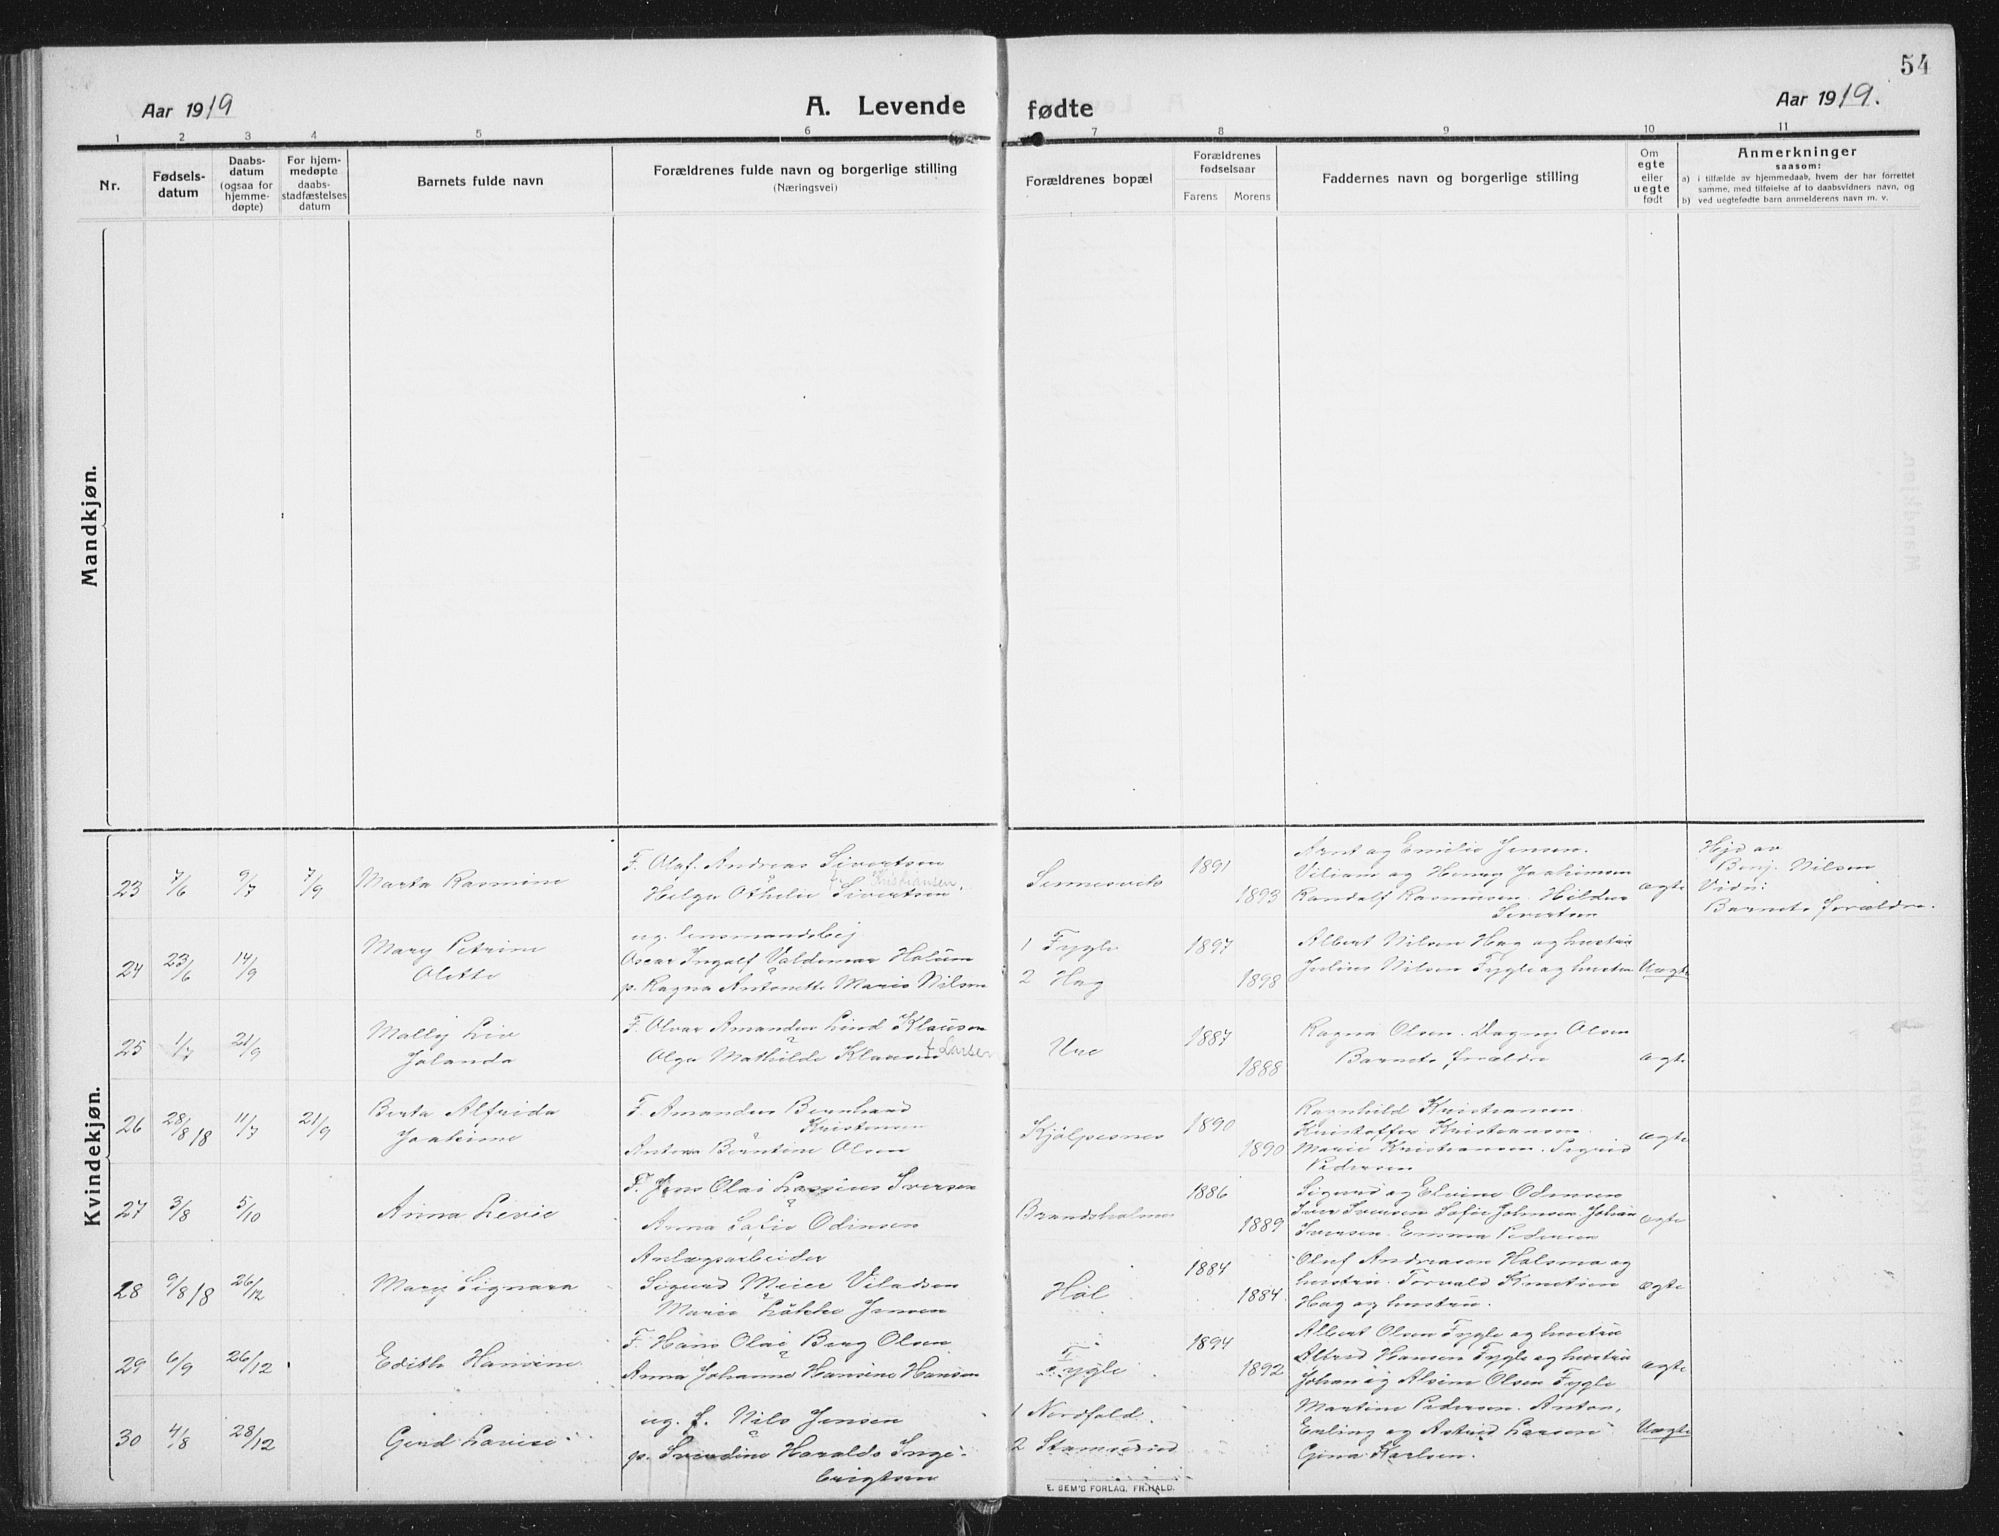 54
Aar 1919
A. Levende
fødte
Aar 1919.
1 2 3 4 5 6 7 8 9 10 11
Nr.
Fødsels-
datum
Daabs-
datum
(ogsaa for
hjemme-
døpte)
For hjem-
medøpte
daabs-
stadfæstelses
datum
Barnets fulde navn
Forældrenes fulde navn og borgerlige stilling
(Næringsvei)
Forældrenes bopæl
Forældrenes
fødselsaar
Farens Morens
Faddernes navn og borgerlige stilling
Om
egte
eller
uegte
født
Anmerkninger
saasom:
a) i tilfælde av hjemmedaab, hvem der har forrettet
samme, med tilføielse af to daabsvidners navn, og
b) ved uegtefødte barn anmelderens navn m. v.
Mandkjøn.
Kvindekjøn.
23 7/6 9/7 7/9
Marta Rasmine
F. Olaf Andreas Sivertsen
f. Kristiansen
Helga Othelie Sivertsen
Sennesvik
1891
1893
Arnt og Emilie Jensen.
Viliam og Henny Joakimsen
Randolf Rasmussen. Hildur
Sivertsen
ægte
Hjd av
Benj. Nilsen
Vidn:
Barnets forældre.
24 23/6 14/9
Mary Petrine
Olette
ug. lensmandsbetj.
Oscar Ingolf Valdemar Holum
p. Ragna Antonette Marie Nilsen
1 Fygle
2 Hag
1897
1898
Albert Nilsen Hag og hustru
Julius Nilsen Fygle og hustru
Uægte
25 1/7 21/9
Mally Liv
Jolanda
F. Olvar Amandus Lind Klausen
Olga Mathilde Klausen f Larsen
Ure
1887
1888
Ragna Olsen. Dagny Olsen
Barnets forældre
ægte
26 28/8 18 11/7 21/9
Berta Alfrida
Joakime
F. Amandus Bernhard
Kristensen
Antona Berntine Olsen
Kjölpesnes
1890
1890
Ragnhild Kristiansen.
Kristoffer Kristiansen.
Marie Kristiansen. Sigrid
Pedersen
ægte
27 3/8 5/10
Anna Levie
F. Jens Olai Lassius Iversen
Anna Sofie Odinsen
Brandsholmen
1886
1889
Sigurd og Elvine Odinsen
Iver Iversen Sofie Johnsen. Johan
Iversen. Emma Pedersen
ægte
28 9/8 18 26/12
Mary Signora
Anlægsarbeider
Sigurd Meier Viladsen
Marie Lökke Jensen
Hol
1884
1884
Oluf Andreasen Holsmo og
hustru. Torvald Knutsen
Hag og hustru.
ægte
29 6/9 26/12
Edith Hansine
F. Hans Olai Berg Olsen
Anna Johanne Hansine Hansen
Fygle
1894
1892
Albert Olsen Fygle og hustru
Alfred Hansen Fygle og hustru
Johan og Alvine Olsen Fygle
ægte
30 4/8 28/12
Gerd Lovise
ug. f. Nils Jensen
p. Svendine Haralds Inge-
brigtsen
1 Nordfold
2 Stamsund
Martine Pedersen. Anton,
Erling og Astrid Larsen
Gina Karlsen.
Uægte
E. SEM'S FORLAG, FR.HALD.